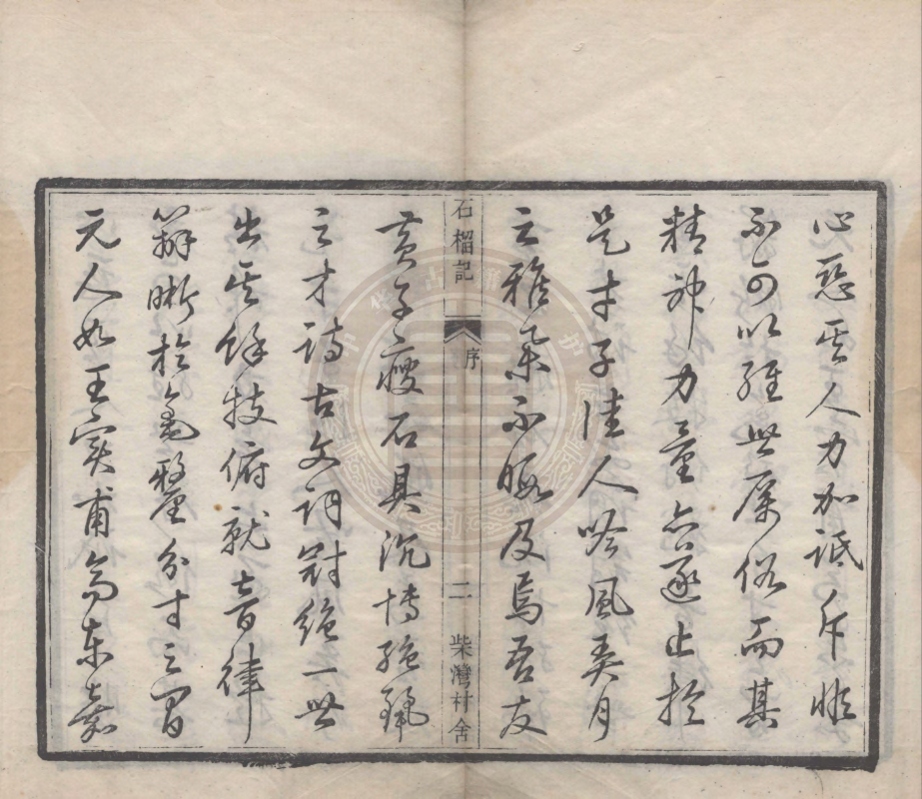 心惡其人力加詆斥惟
不可以經世厲俗而其
精神力量亦遂止於
是才子佳人吟風弄月
之雅集不暇及焉吾友
石榴記 序 二 柴灣村舍
黄子瘦石具沉博絕麗
之才詩古文詞冠絕一世
出其餘技俯就音律
辨晰於毫釐分寸之間
元人如王實甫高東嘉